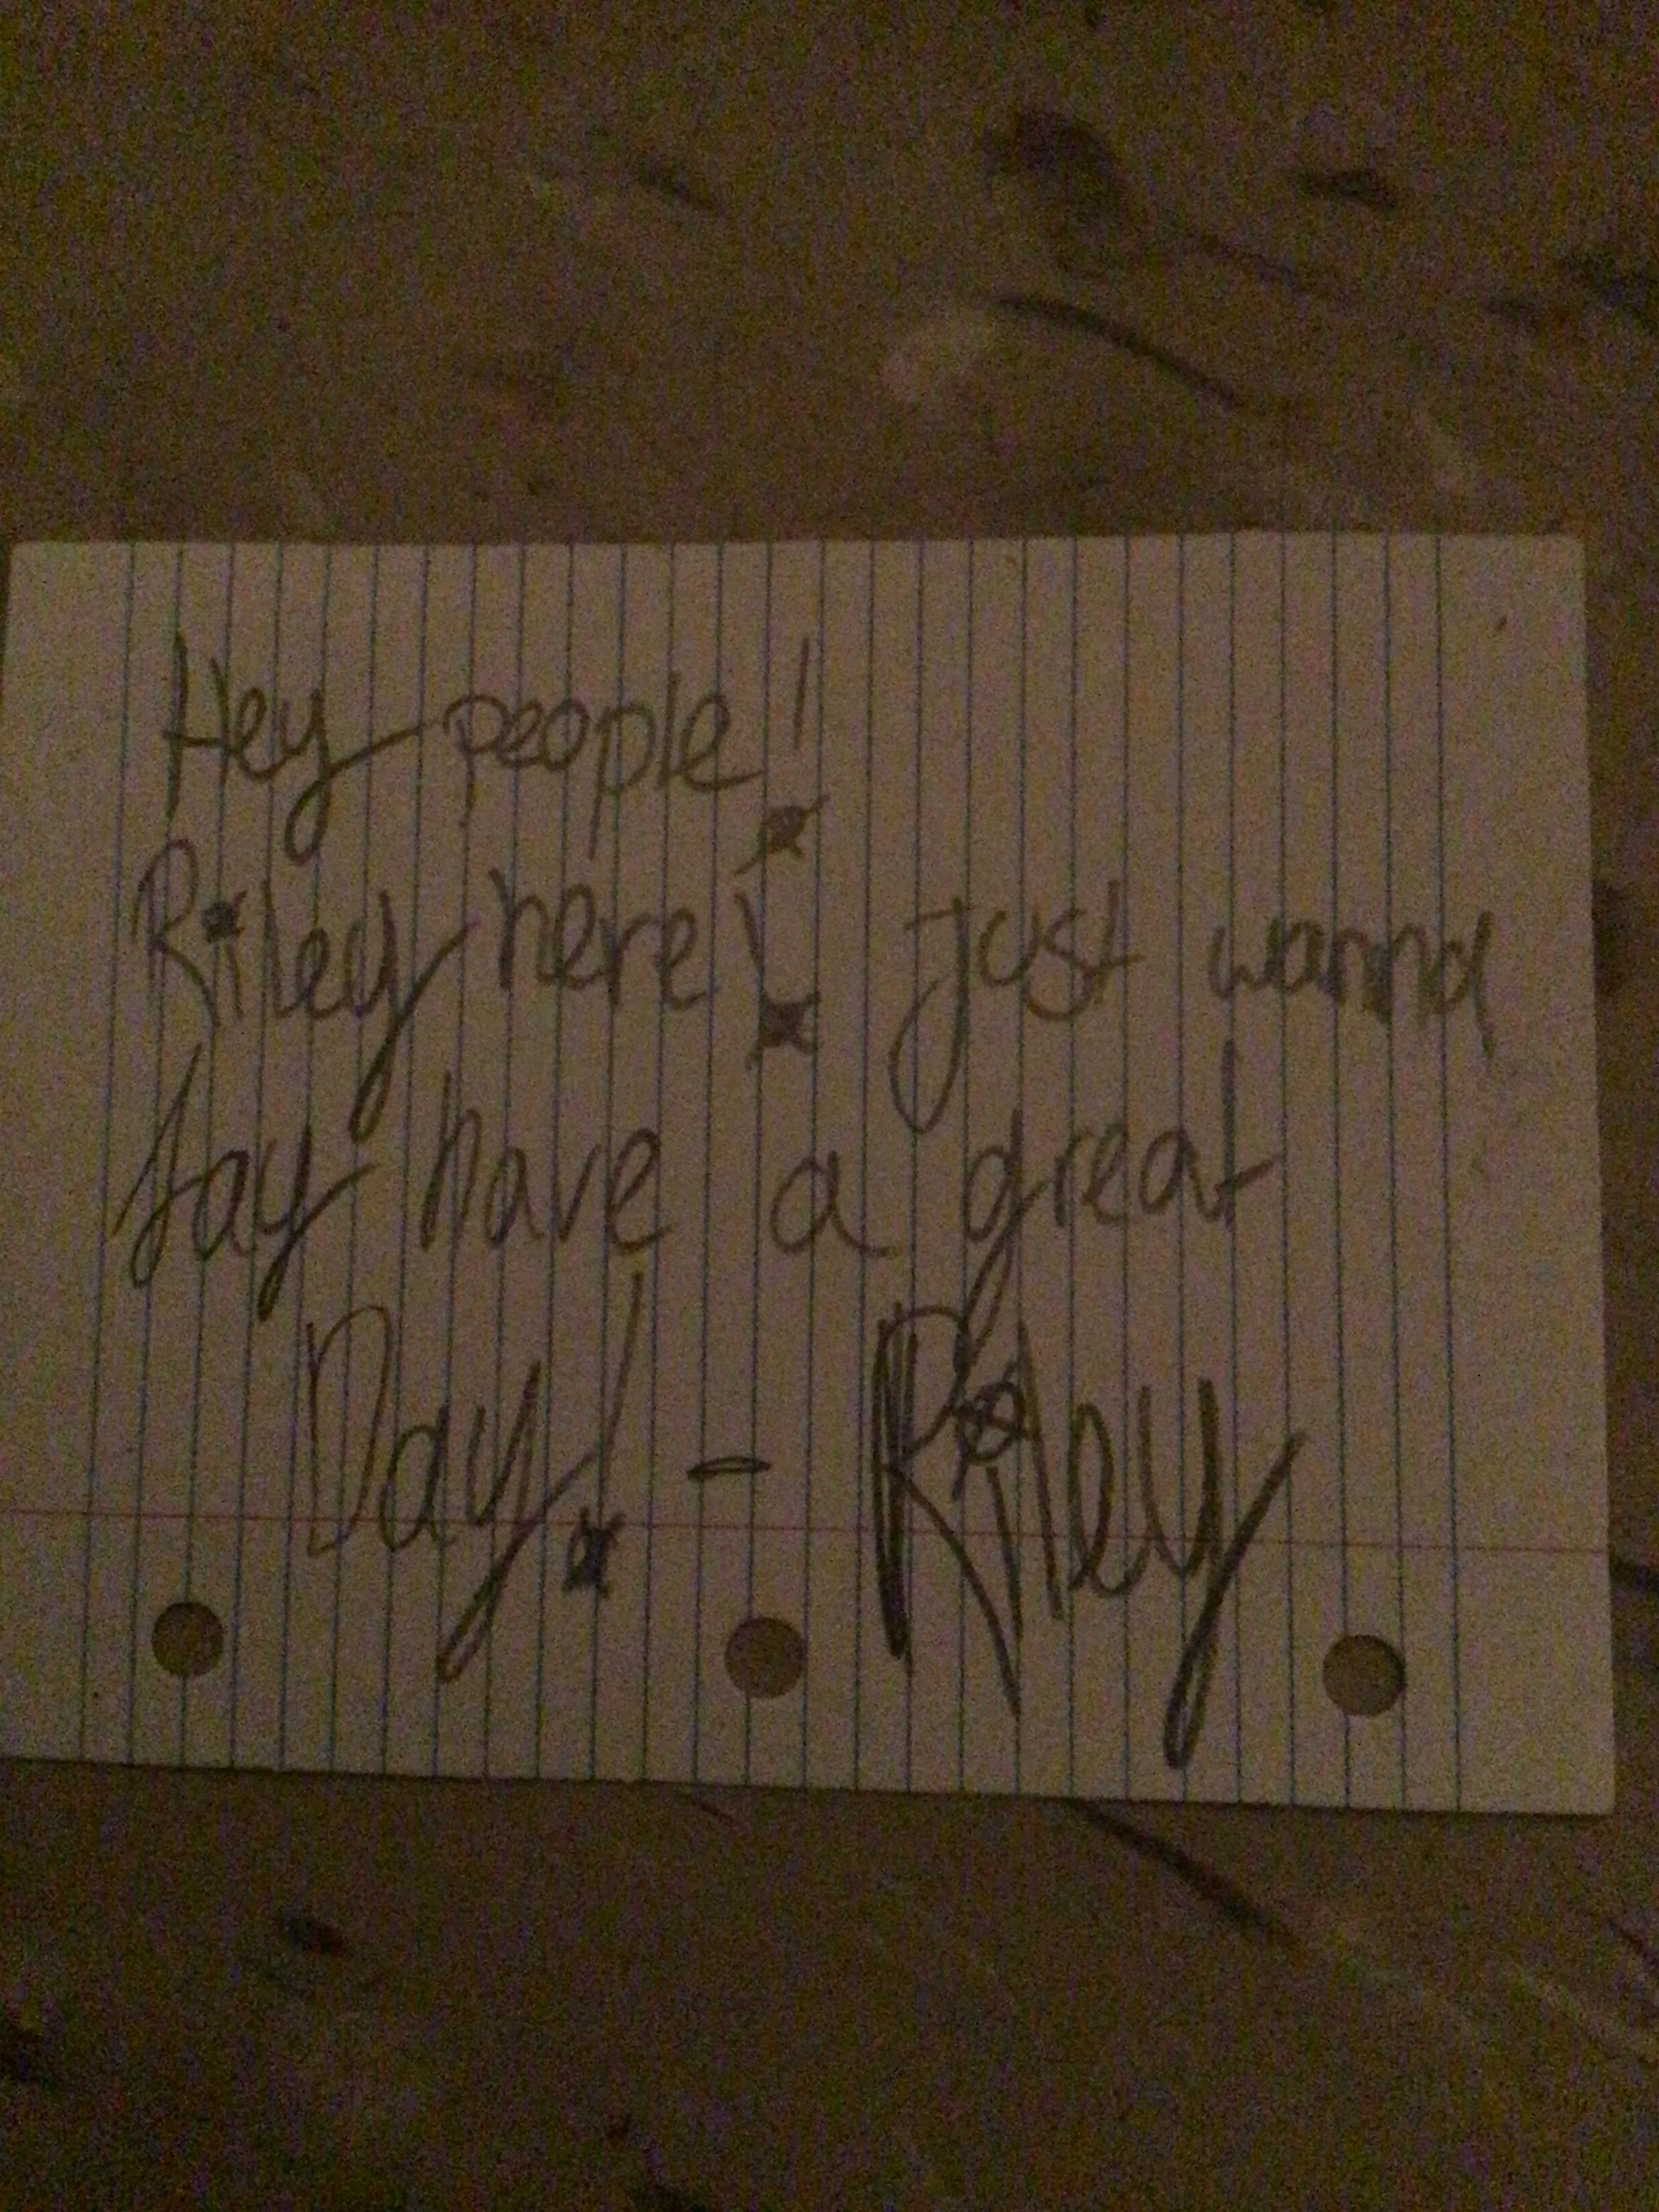 Hey people!
Riley here! Just wanna
say have a great
Day! - Riley